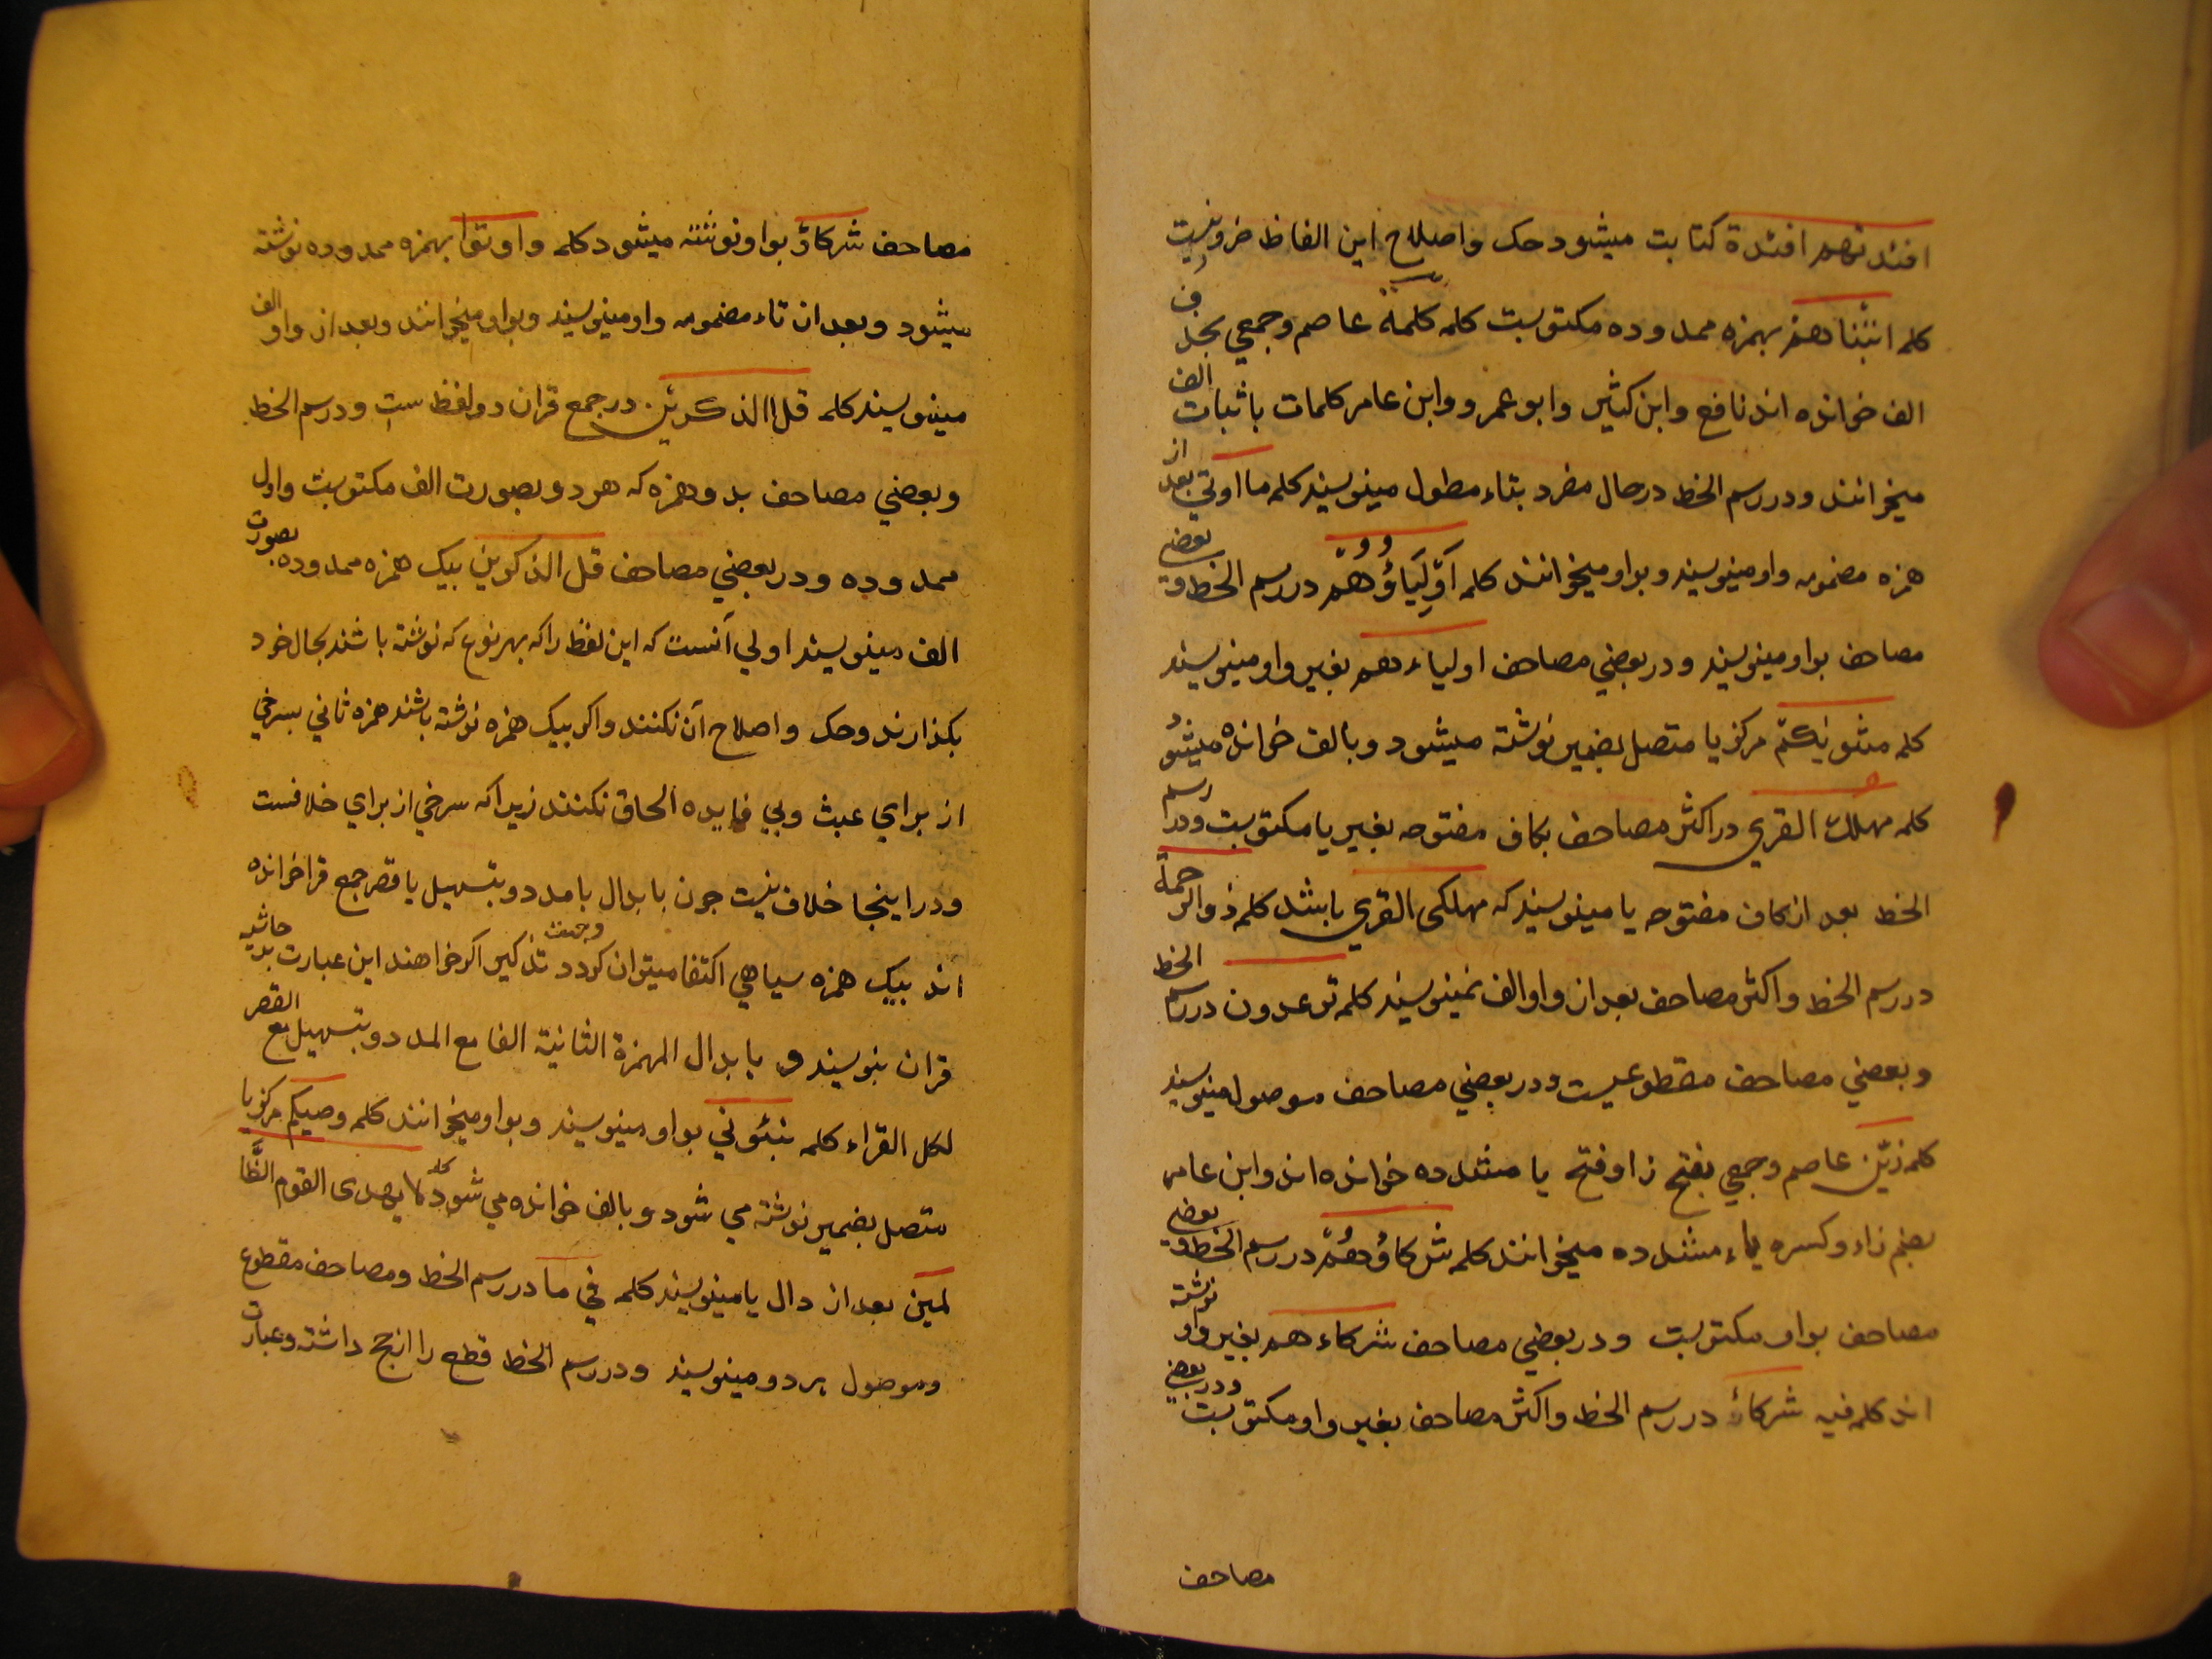 افئدتهم افئدة کتابت میشود حک واصلاح این الفاظ ضرورنیست
کلمه اتینا دهم بهمزه ممدوده مکتوبست کلمه کلمة عاصم وجمعي بحذف
الف خوانده اند نافع وابن کثیر وابو عمرو وابن عامر کلمات باثبات الف
میخوانند ودر رسم الخط در حال مفرد بتاء مطول مینویسند کلمه ما اوتي بعد از
همزه مضمومه واو مینویسند وبواو میخوانند کلمه اَوْلِیَاؤُهُمْ در رسم الخط وبعضي
مصاحف بواو مینویسند ودر بعضي مصاحف اولیاءهم بغیر واو مینویسند
کلمه مثویٰکم مرکز یا متصل بضمیر نوشته میشود وبالف خوانده میشود
کلمه مهلك القري در اکثر مصاحف بکاف مفتوحه بغیر یا مکتوبست ودر رسم
الخط بعد از کاف مفتوحه یا مینویسند که مهلکی القري باشد کلمه ذو الرحمة
در رسم الخط واکثر مصاحف بعد از واو الف نمینویسند کلمه توعدون در رسم الخط
وبعضي مصاحف مقطوعیست ودر بعضي مصاحف موصول مینویسند
کلمه زیّن عاصم وجمعي بفتح زا وفتح یا مشدده خوانده اند وابن عامر
بضم زاء وکسره یاء مشدده میخوانند کلمه شرکاؤُهُمْ در رسم الخط وبعضي
مصاحف بواو مکتوبست ودر بعضي مصاحف شرکاءهم بغیر واو نوشته
اند کلمه فیه شرکاءُ در رسم الخط واکثر مصاحف بغیر واو مکتوبست ودر بعضي
مصاحف
مصاحف شرکاؤ بواو نوشته میشود کلمه واوتوا بهمزه ممدوده نوشته
میشود وبعد ان تاء مضمومه واو مینویسند وبواو میخوانند وبعد از واو الف
مینویسند کلمه قل االذکرین در جمع قران دو لفظ ست ودر رسم الخط
وبعضي مصاحف بدو همزه که هر دو بصورت الف مکتوبست واول
ممدوده ودر بعضي مصاحف قل الذکرین بیک همزه ممدوده بصورت
الف مینویسند اولي آنست که این لفظ را که بهر نوع که نوشته باشند بحال خود
بکذارند وحک واصلاح آن نکنند واکر بیک همزه نوشته باشند همزه ثاني بسرخي
از براي عبث وبي فایده الحاق نکنند زیراکه سرخي از براي خلافست
ودر اینجا خلاف نیست جون بابدال بامد دو بتسهیل یا قصر جمع قرا خوانده
اند بیک همزه سیاهي اکتفا میتوان کرد تذکیر اکر خواهند این عبارت بدر حاشیه
قران بنویسند و بابدال الهمزة الثانیة الفا مع المد دو بتسهیل مع القصر
لکل القراء کلمه نبئوني بواو مینویسند وبواو میخوانند کلمه وصیکم مرکز یا
متصل بضمیر نوشته مي شود وبالف خوانده مي شود کلمه لا یهدی القوم الظّا
لمین بعد از دال یا مینویسند کلمه في ما در رسم الخط ومصاحف مقطوع
وموصول هر دو مینویسند ودر رسم الخط قطع را ارجح داشته وعبارت